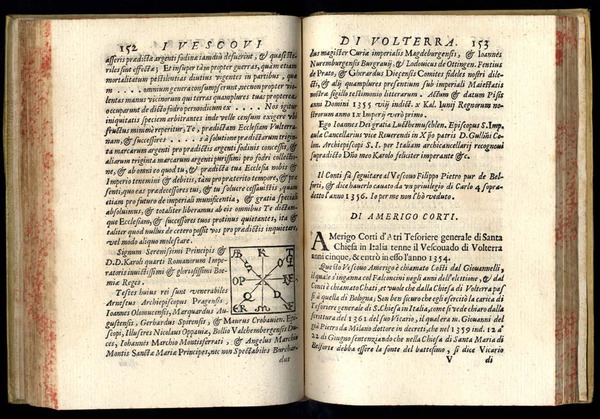 152 I VESCOVI
asseris prædicta argenti fodina iamdiu defuerint, & quasi ste-
riles sint effecta; Et insuper tàm propter guerras, quàm etiam
mortalitatum pestilentias diutius vigentes in partibus, quàm
m..... omnium genera consumpserunt, necnon propter vio-
lentas manus vicinorum qui terras quamplures tuas propterea
occuparunt de dicta fodin persondictim ex.... Nos igitur
iniquitatis speciem arbitrantes inde velle censum exigere vbi
fructus minimè reperitur, Te, prædictam Ecclesiam Volterra-
nam, & successores ..... à solutione prædictarum trigin-
ta marcarum argenti pro prædictis argenti fodinis concessis, &
aliarum triginta marcarum argenti purissimi pro fodri collectio-
ne, & ab omni eo quod tu, & prædicta tua Ecclesia nobis &
Imperio tenemini & debitis, tàm pro præterito tempore, & præ-
senti, quo eas prædecessores tui, & tu soluere cessauistis, quàm
etiam pro futuro de imperiali munificentia, & gratia speciali
absoluimus, & totaliter liberamus ab eis omnibus Te dictam-
que Ecclesiam, & successores tuos protinus quietantes, ita &
totaliter quod nullus de cetero possit vos pro prædictis inquietare,
vel modo aliquo molestare.
Signum Serenissimi Principis &
D. D. Karoli quarti Romanorum Impe-
ratoris inuictissimi & gloriosissimi Boe-
mia Reges.
Testes huius rei sunt venerabiles
Arnestus Archiepiscopus Pragensis,
Ioannes Olomucensis, Marquardus Au-
gustensis, Gerhardus Spirensis, & Maurus Crobauien. Epi-
scopi, Illustres Nicolaus Oppauia, Bollio Valchembergensis Du-
ces, Iohannis Marchio Montisferrati, & Angelus Marchio
Montis Sanctæ Mariæ Principes, nec non Spectabiles Burchar-
dus
DI VOLTERRA. 153
dus magister Curiæ imperialis Magdeburgensis, & Ioannes
Nuremburgensis Burgrauij, & Lodouicus de Ottingen. Fentius
de Prato, & Gherardus Diegensis Comites fideles nostri dile-
cti, & alij quamplures præsentium sub imperiali Maiestatis
nostræ sigillo testimonio litterarum. Actum & datum Pisis
anni Domini 1355 viij indict. x Kal. Iunij Regnorum no-
strorum anno ix Imperij verò primo.
Ego Ioannes Dei gratia Luthbemuschlen. Episcopus S. Imp.
aula Cancellarius vice Reuerendi in Xpo patris D. Guillmi Co-
lon. Archiepiscopi S. I. per Italiam archicancellarij recognoui
supradicto Dño meo Karolo feliciter imperante &c.
Il Conti fà seguitare al Vescouo Filippo Pietro pur de Bel-
forti, & dice hauerlo cauato da vn priuilegio di Carlo 4 sopra-
detto l'anno 1356. Io per me non l'hò veduto.
DI AMERIGO CORTI.
Amerigo Corti d'Atri Tesoriere generale di Santa
Chiesa in Italia tenne il Vescouado di Volterra
anni cinque, & entrò in esso l'anno 1354.
Questo Vescouo Amerigo è chiamato Cotti dal Giouannelli,
il quale s'inganna col Falconcini negli anni dell'elettione, & dal
Conti è chiamato Chati, et vuole che dalla Chiesa di Volterra pas-
sì à quella di Bologna; Son ben sicuro che egli esercitò la carica di
Tesoriere generale di S. Chiesa in Italia, come si vede chiaro dalla
scrittura del 1361 del suo Vicario, il qual era M. Giouanni del
già Pietro da Milano dottore in decreti, che nel 1359 ind. 12 a'
22 di Giugno sententiando che nella Chiesa di Santa Maria di
Belforte debba essere la fonte del battesimo, si dice Vicario
V di